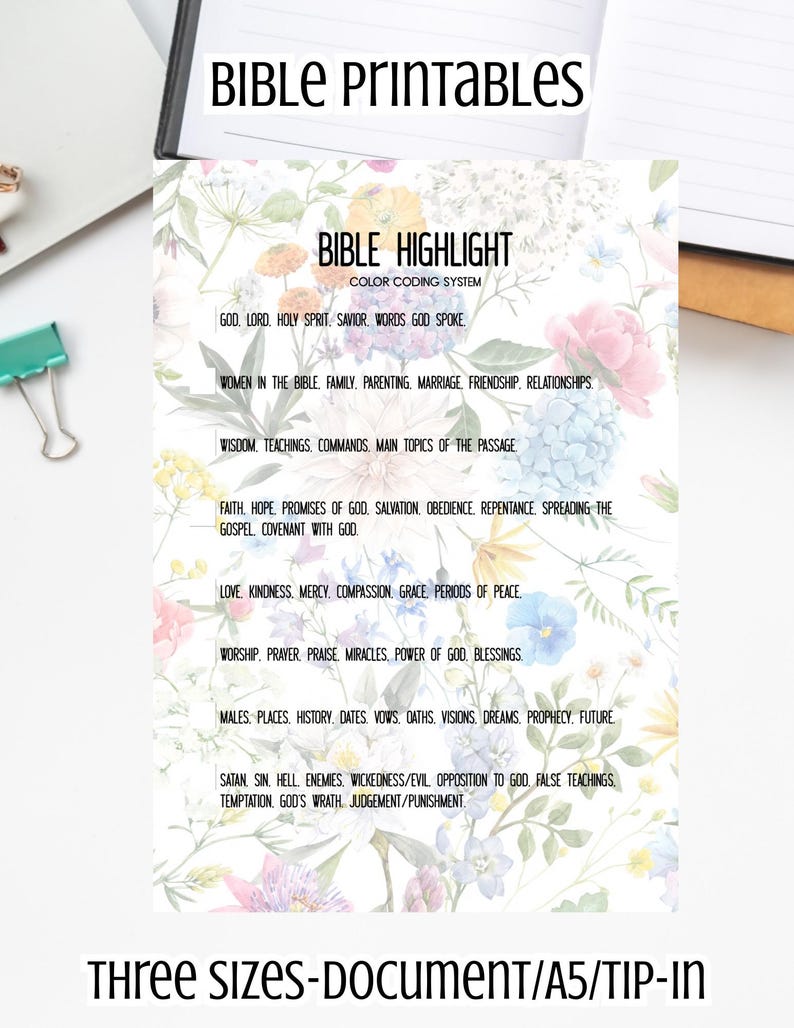 BIBLE PRINTABLES
BIBLE HIGHLIGHT
COLOR CODING SYSTEM
GOD, LORD, HOLY SPRIT, SAVIOR, WORDS GOD SPOKE.
WOMEN IN THE BIBLE, FAMILY, PARENTING, MARRIAGE, FRIENDSHIP, RELATIONSHIPS.
WISDOM, TEACHINGS, COMMANDS, MAIN TOPICS OF THE PASSAGE.
FAITH, HOPE, PROMISES OF GOD, SALVATION, OBEDIENCE, REPENTANCE, SPREADING THE
GOSPEL, COVENANT WITH GOD.
LOVE, KINDNESS, MERCY, COMPASSION, GRACE, PERIODS OF PEACE.
WORSHIP, PRAYER, PRAISE, MIRACLES, POWER OF GOD, BLESSINGS.
MALES, PLACES, HISTORY, DATES, VOWS, OATHS, VISIONS, DREAMS, PROPHECY, FUTURE.
SATAN, SIN, HELL, ENEMIES, WICKEDNESS/EVIL, OPPOSITION TO GOD, FALSE TEACHINGS,
TEMPTATION, GOD'S WRATH, JUDGEMENT/PUNISHMENT.
THREE SIZES-DOCUMENT/A5/TIP-IN